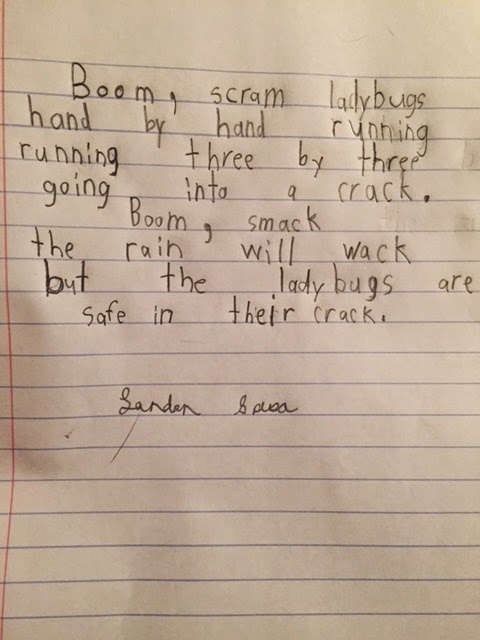 Boom, scram ladybugs
hand by hand running
running three by three
going into a crack.
Boom, smack
the rain will wack
but the ladybugs are
safe in their crack.
Landen Sousa